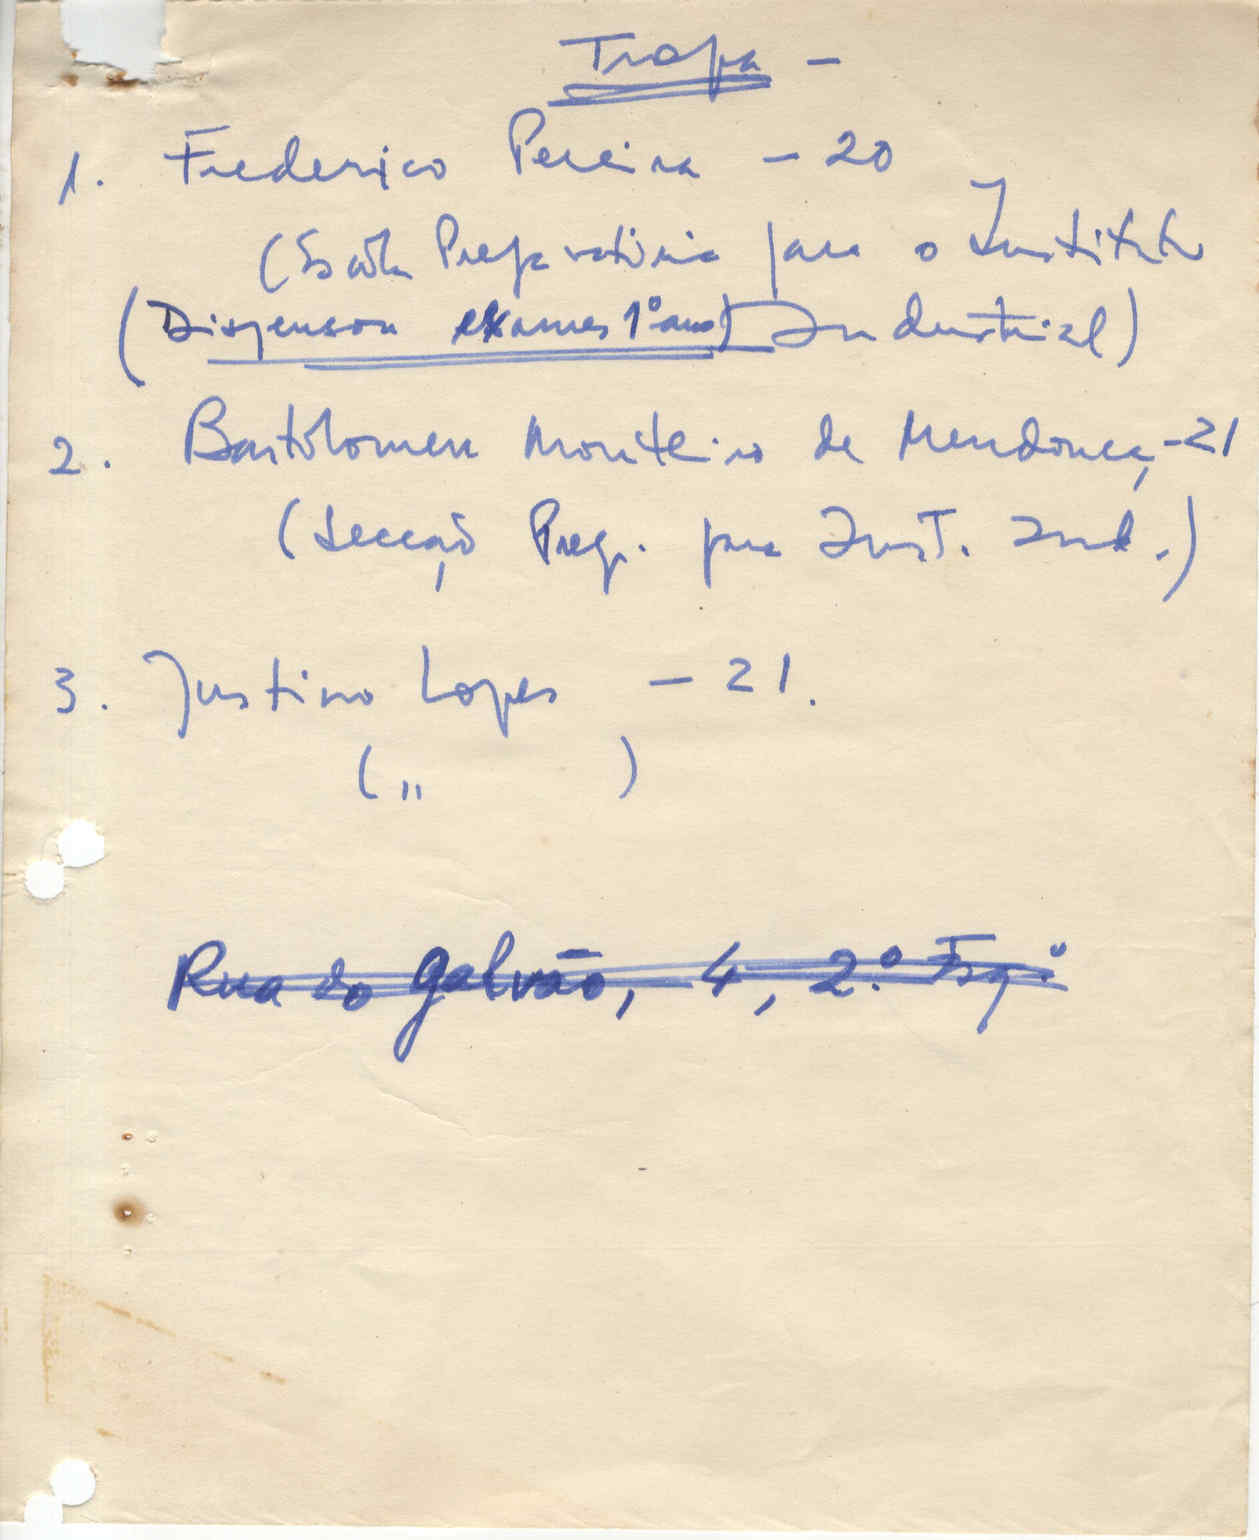 Tropa -
1. Frederico Pereira - 20
(Escola Preparatória para o Instituto
(Dispensou exames 1º ano) Industrial)
2. Bartolomeu Monteiro de Mendonça - 21
(Secção Prep. para Inst. Ind.)
3. Justino Lopes - 21.
( " )
Rua do Galvão, 4, 2.º Esq.º